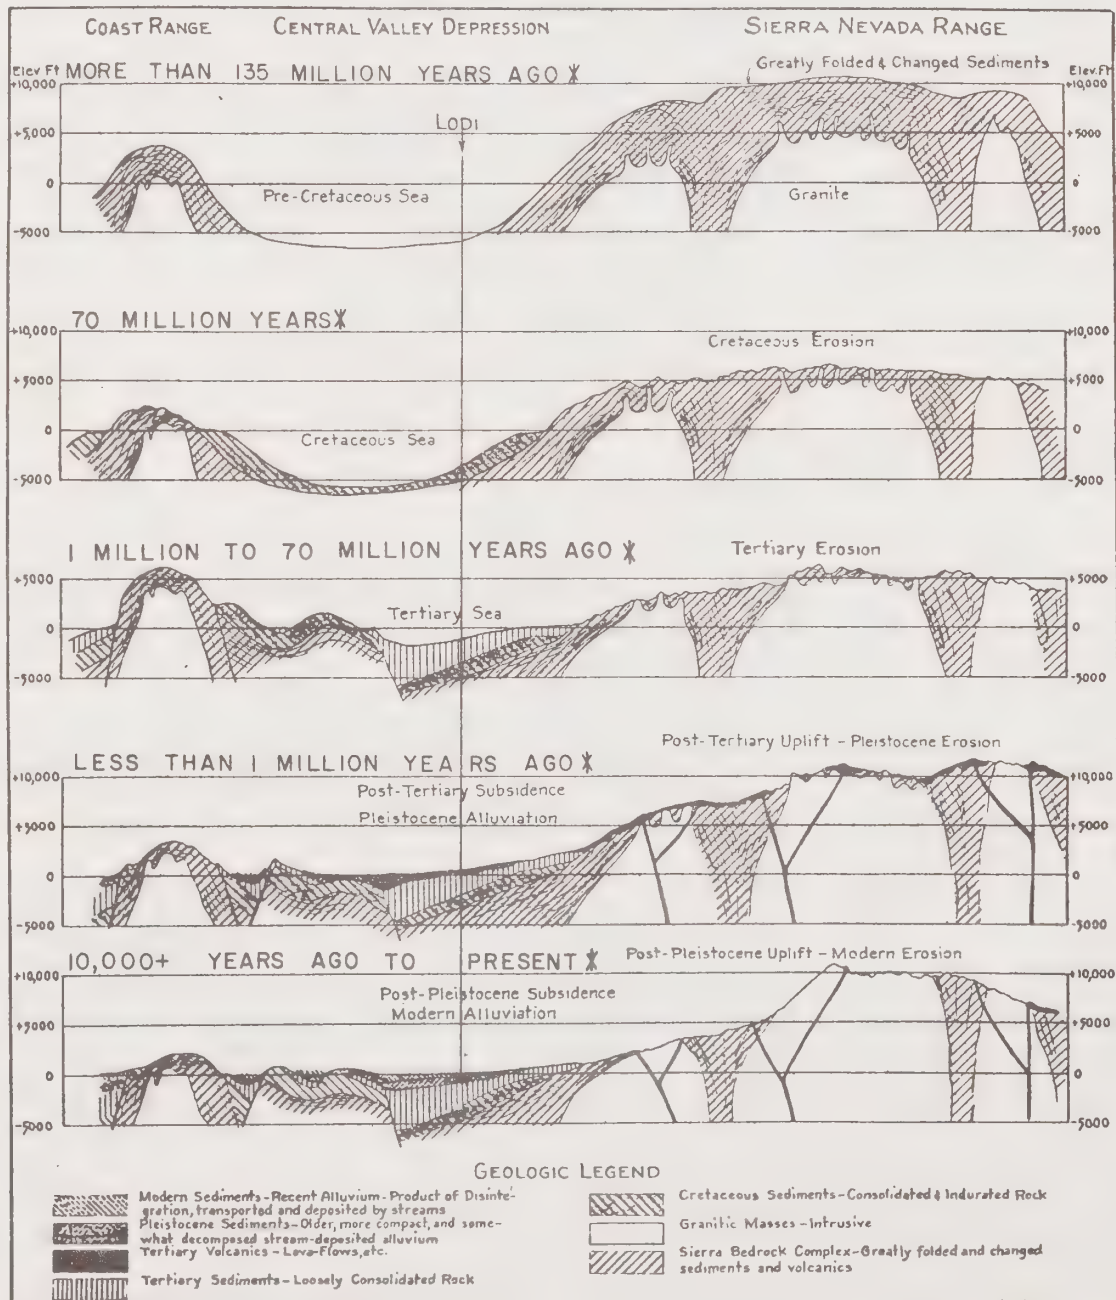 COAST RANGE CENTRAL VALLEY DEPRESSION SIERRA NEVADA RANGE
Elev Ft MORE THAN 135 MILLION YEARS AGO * Greatly Folded & Changed Sediments Elev. Ft
+10,000 +10,000
LODI
+5000 +5000
0 Pre-Cretaceous Sea Granite 0
-5000 -5000
70 MILLION YEARS *
+10,000 Cretaceous Erosion +10,000
+5000 +5000
0 Cretaceous Sea 0
-5000 -5000
1 MILLION TO 70 MILLION YEARS AGO * Tertiary Erosion
+5000 +5000
Tertiary Sea
0 0
-5000 -5000
Post-Tertiary Uplift - Pleistocene Erosion
LESS THAN 1 MILLION YEARS AGO *
+10,000 Post-Tertiary Subsidence +10,000
Pleistocene Alluviation
+5000 +5000
0 0
-5000 -5000
10,000+ YEARS AGO TO PRESENT * Post-Pleistocene Uplift - Modern Erosion
+10,000 +10,000
Post-Pleistocene Subsidence
Modern Alluviation
+5000 +5000
0 0
-5000 -5000
GEOLOGIC LEGEND
Modern Sediments - Recent Alluvium - Product of Disinte-
gration, transported and deposited by streams
Pleistocene Sediments - Older, more compact, and some-
what decomposed stream-deposited alluvium
Tertiary Volcanics - Lava-Flows, etc.
Tertiary Sediments - Loosely Consolidated Rock
Cretaceous Sediments - Consolidated & Indurated Rock
Granitic Masses - Intrusive
Sierra Bedrock Complex - Greatly folded and changed
sediments and volcanics